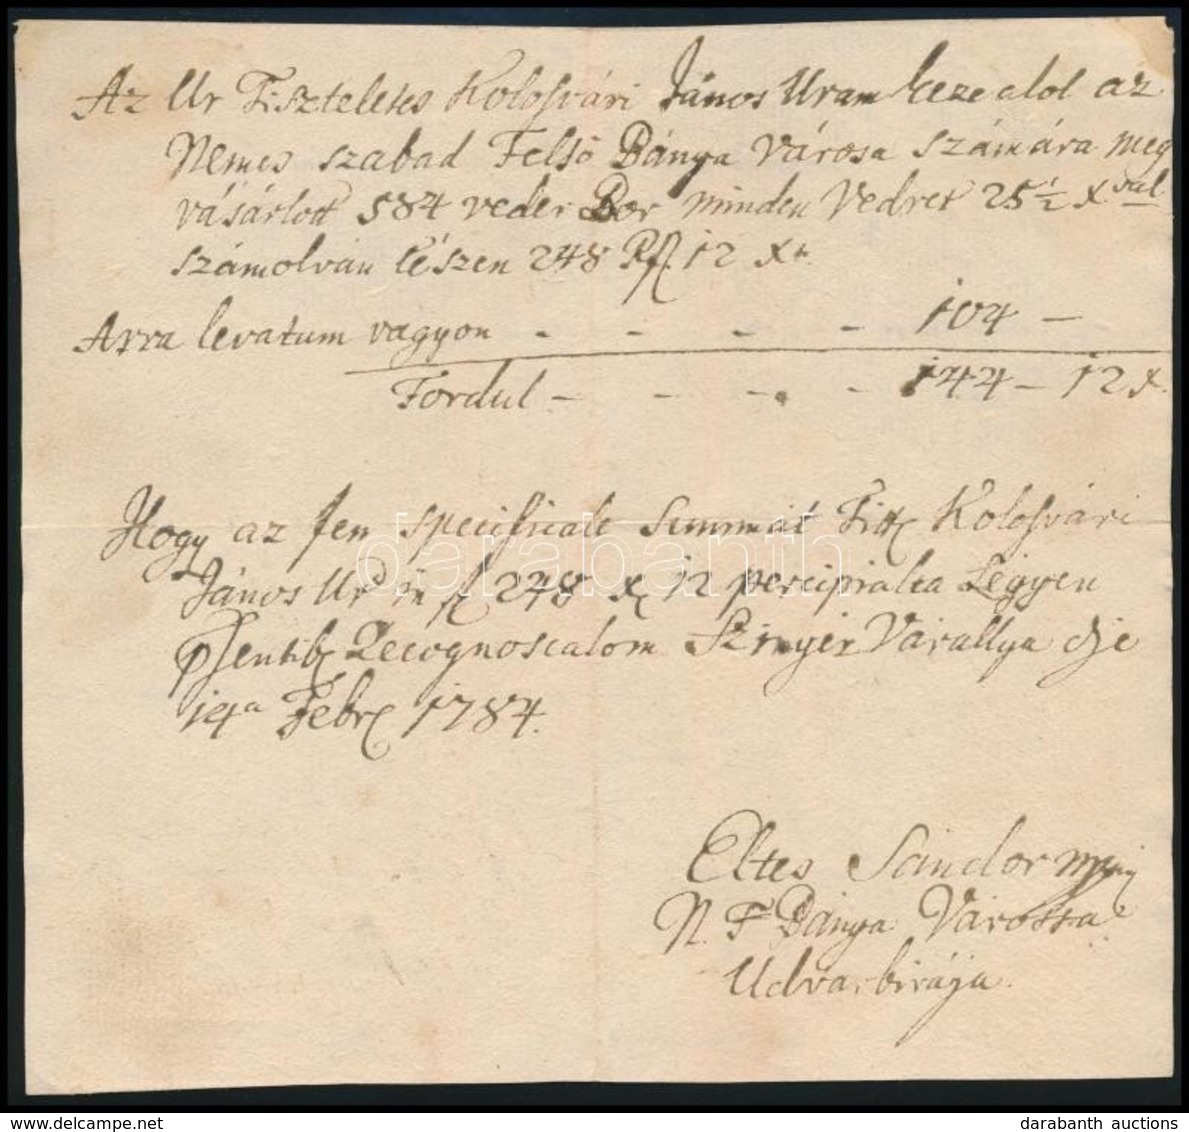 Az Ur Tiszteletes Kolosvári János Uram keze alol az
Nemes szabad Felső Bánya Városa számára meg
vásárlott 584 veder Bor minden Vedret 25½ xval
számolván lészen 248 Rfl. 12 xr.
Arra levatum vagyon - - - - 104 -
Fordul - - - - 144 - 12 x.
Hogy az fen specificalt summát Titt Kolosvári
János Ur in fl 248 x 12 percipialta Légyen
psentib Recognoscalom Szinyér Várallya die
14a Febr 1784.
Eltes Sándor mpr
N. F Bánya Várossa
Udvarbirája.
darabanth
darabanth auctions